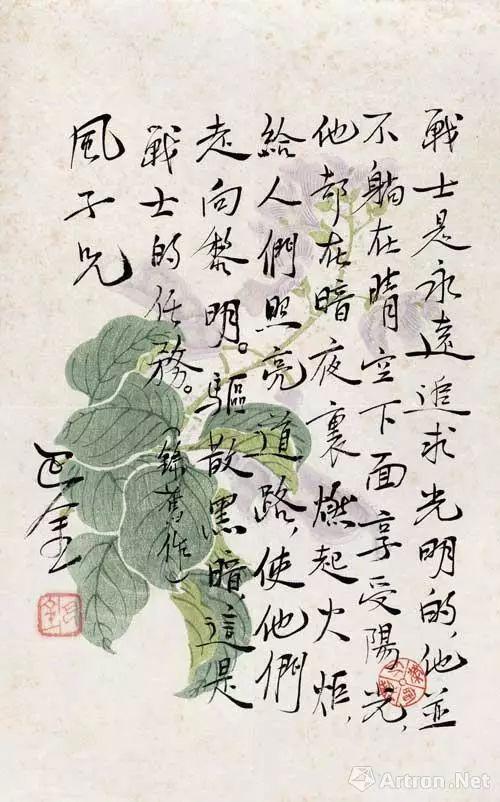 戰士是永遠追求光明的，他並
不躺在晴空下面享受陽光，
他却在暗夜裏燃起火炬，
給人們照亮道路，使他們
走向黎明。驅散黑暗，這是
戰士的任務。
（錄舊作）
風子兄
巴金
Artron.Net